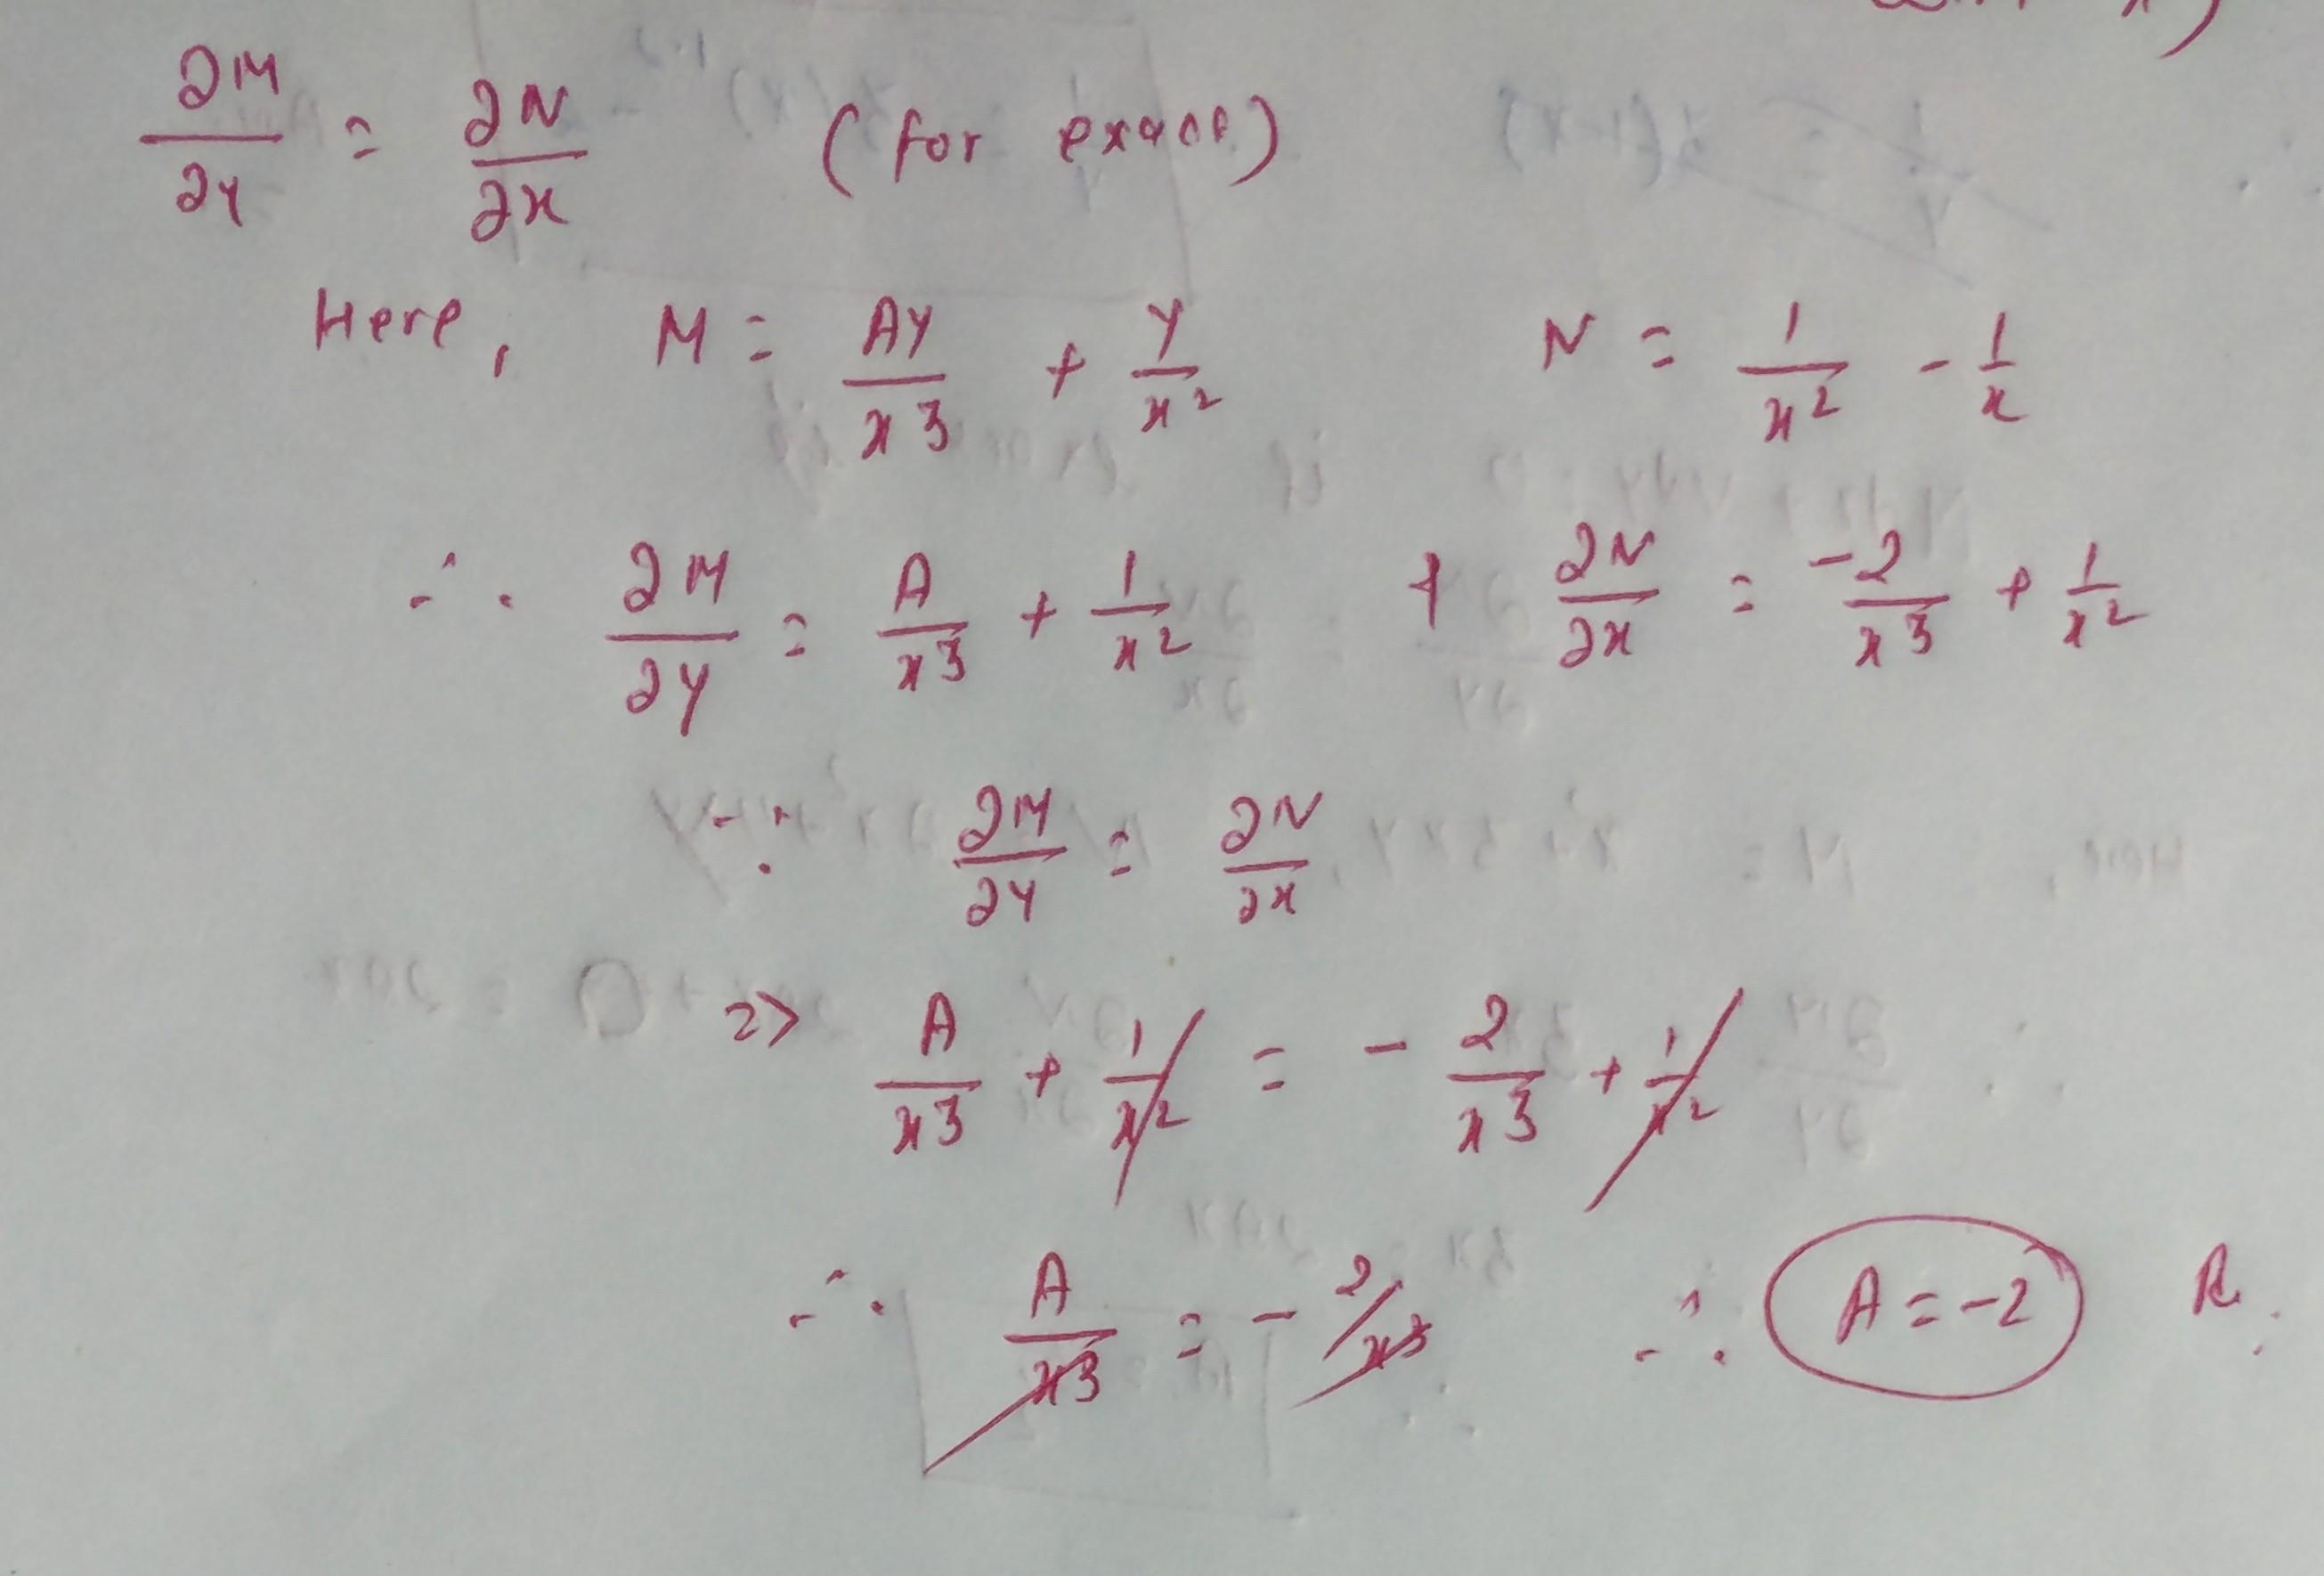 ∂M/∂y = ∂N/∂x (for exact)
Here, M = Ay/x³ + y/x² N = 1/x² - 1/x
∴ ∂M/∂y = A/x³ + 1/x² & ∂N/∂x = -2/x³ + 1/x²
∵ ∂M/∂y = ∂N/∂x
=> A/x³ + 1/x² = - 2/x³ + 1/x²
∴ A/x³ = - 2/x³ ∴ A = -2